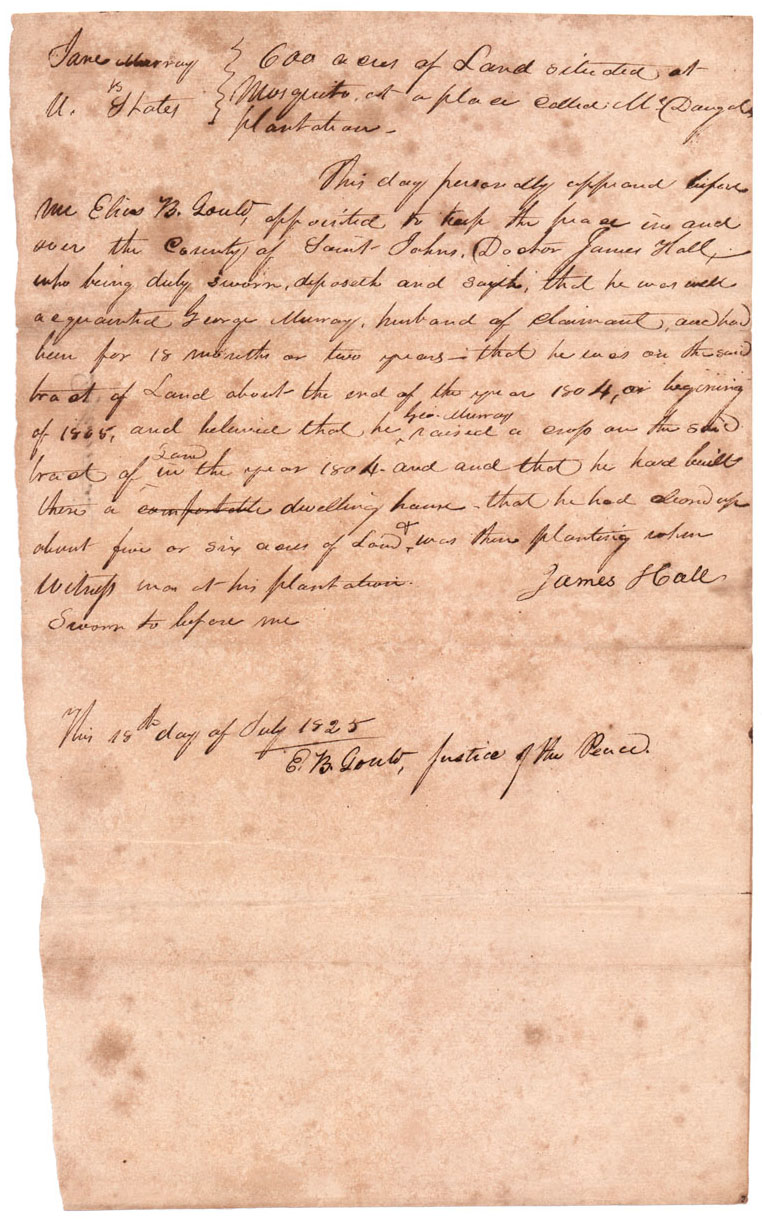 Jane Murray } 600 acres of Land situated at
vs
U. States } Mosquito, at a place called Mc Dougals
plantation -
This day personally appeared before
me Elias B. Gould, appointed to keep the peace in and
over the County of Saint Johns, Doctor James Hall,
who being duly sworn, deposeth and sayth, that he was well
acquainted George Murray, husband of claimant, and had
been for 18 months or two years - that he was on the said
tract of Land about the end of the year 1804, or begining
of 1805, and believed that he Geo. Murray raised a crop on the said
tract of Land in the year 1804 - and and that he had built
there a comfortable dwelling house - that he had cleared up
about five or six acres of Land & was then planting when
Witness was at his plantation.
James Hall
Sworn to before me
This 18th day of July 1825
E. B. Gould, Justice of the Peace.